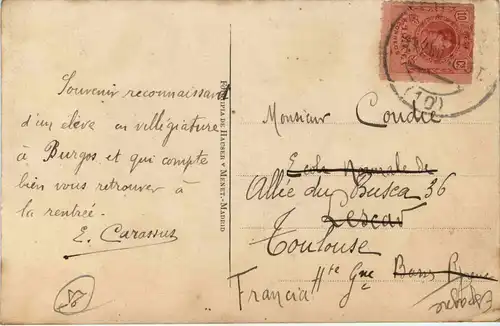 Souvenir reconnaissant
d'un élève en villégiature
à Burgos et qui compte
bien vous retrouver à
la rentrée.
E. Carassus
FOTOTIPIA DE HAUSER Y MENET.-MADRID
Monsieur Condie
Ecole Normale de
Allée du Busca 36
Lescar
Toulouse
Hte Gne
Basses Pyrene
Francia
Espagne
10
(10)